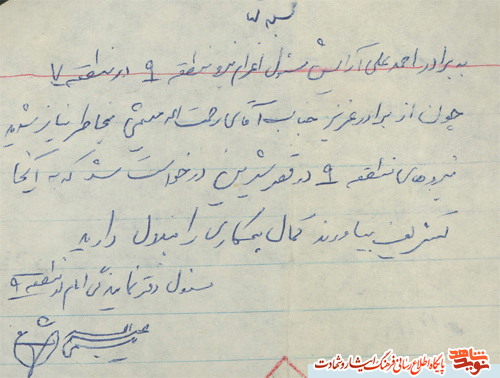 بسمه تعالی
به برادر احمد علی آرایش مسئول اعزام نیرو منطقه ۹ در منطقه ۷
چون از برادر عزیز جناب آقای رحمت اله میثمی بخاطر نیاز شدید
نیروهای منطقه ۹ در قصرشیرین درخواست شد که به آنجا
تشریف بیاورند کمال همکاری را مبذول دارید
مسئول دفتر نمایندگی امام در منطقه ۹
عبداله میثمی
نوید شاهد
پایگاه اطلاع رسانی فرهنگ ایثار و شهادت